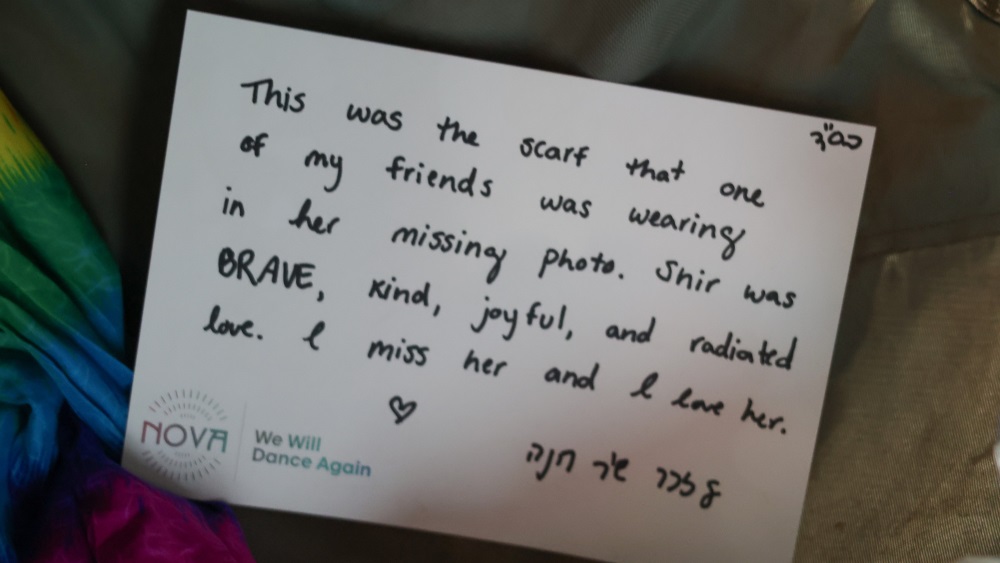 בס"ד
This was the scarf that one
of my friends was wearing
in her missing photo. Shir was
BRAVE, kind, joyful, and radiated
love. I miss her and I love her.
♡
לזכר שיר חנה
NOVA
We Will
Dance Again